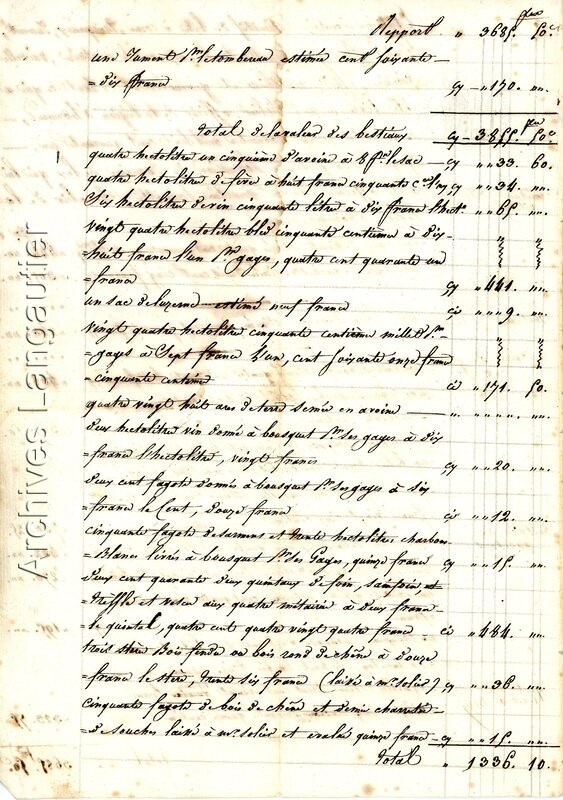 frs
Repport " 3685. 50 c
une Jument pr. letombereau estimée cent soixante =
= dix franc cy - " 170. " "
frs
Total delavaleur des bestiaux cy - 3855. 50 c
quatre hectolitre un cinquième d'avoine à 8 f. lesac - cy " " 33. 60
quatre hectolitre de fève à huit franc cinquante c. l'un cy " " 34. " "
Six hectolitre devin cinquante litre à dix franc l'hecto. " " 65. " "
vingt quatre hectolitre bled cinquante centième à dix-
= huit franc l'un pr. gages, quatre cent quarante un
= franc cy " 441. " "
un sac deluzerne estimé neuf franc ci " " 9. " "
vingt quatre hectolitre cinquante centième millet pr.
= gages à Sept franc l'un, cent soixante onze franc
= cinquante centime ci " 171. 50.
quatre vingt huit ares de terre semée en avoine
deux hectolitre vin donné à bousquet pr. ses gages à dix
= franc l'hectolitre, vingt francs cy " " 20. " "
deux cent fagots donnés à bousquet pr. ses gages à six
= franc le Cent, douze franc ci " " 12. " "
cinquante fagots de sarmens et trente hectolitre, charbon
= Blanc livrés à bousquet pr. ses Gages, quinze franc cy " " 15. " "
deux cent quarante deux quintaux de foin, sainfoin et
= treffle et vesce aux quatre métairie à deux franc
= le quintal, quatre cent quatre vingt quatre franc - ci " 484. " "
trois stère Bois fendu ou bois rond de chêne à douze
= franc lestère, trente six franc (laissé à mr. solier) cy " " 36. " "
cinquante fagots de bois de chêne et demi charretée
= de souches laissé à mr. solier et évalué quinze franc - cy " " 15. " "
Total " 1336. 10.
Archives Langautier